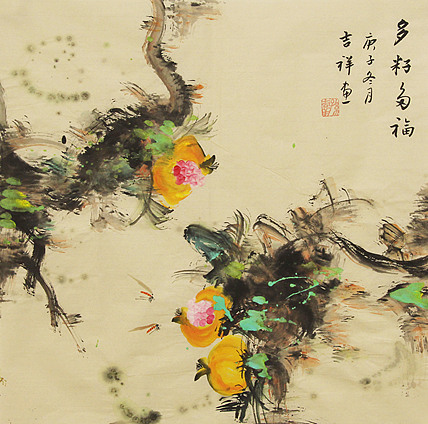 多籽多福
庚子冬月
吉祥画